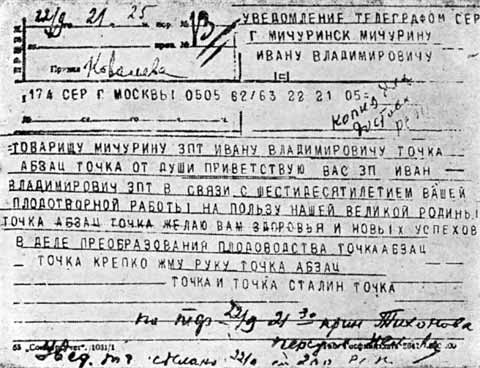 22/9 21 25 пер. №
УВЕДОМЛЕНИЕ ТЕЛЕГРАФОМ СЕР
Г МИЧУРИНСК МИЧУРИНУ
ИВАНУ ВЛАДИМИРОВИЧУ
Принял Ковалева
174 СЕР Г МОСКВЫ 0505 62/63 22 21 05
копия
ТОВАРИЩУ МИЧУРИНУ ЗПТ ИВАНУ ВЛАДИМИРОВИЧУ ТОЧКА
АБЗАЦ ТОЧКА ОТ ДУШИ ПРИВЕТСТВУЮ ВАС ЗП ИВАН
ВЛАДИМИРОВИЧ ЗПТ В СВЯЗИ С ШЕСТИДЕСЯТИЛЕТИЕМ ВАШЕЙ
ПЛОДОТВОРНОЙ РАБОТЫ НА ПОЛЬЗУ НАШЕЙ ВЕЛИКОЙ РОДИНЫ
ТОЧКА АБЗАЦ ТОЧКА ЖЕЛАЮ ВАМ ЗДОРОВЬЯ И НОВЫХ УСПЕХОВ
В ДЕЛЕ ПРЕОБРАЗОВАНИЯ ПЛОДОВОДСТВА ТОЧКА АБЗАЦ
ТОЧКА КРЕПКО ЖМУ РУКУ ТОЧКА АБЗАЦ
ТОЧКА И ТОЧКА СТАЛИН ТОЧКА
по тф 22/9 21 30 прин Тихонова